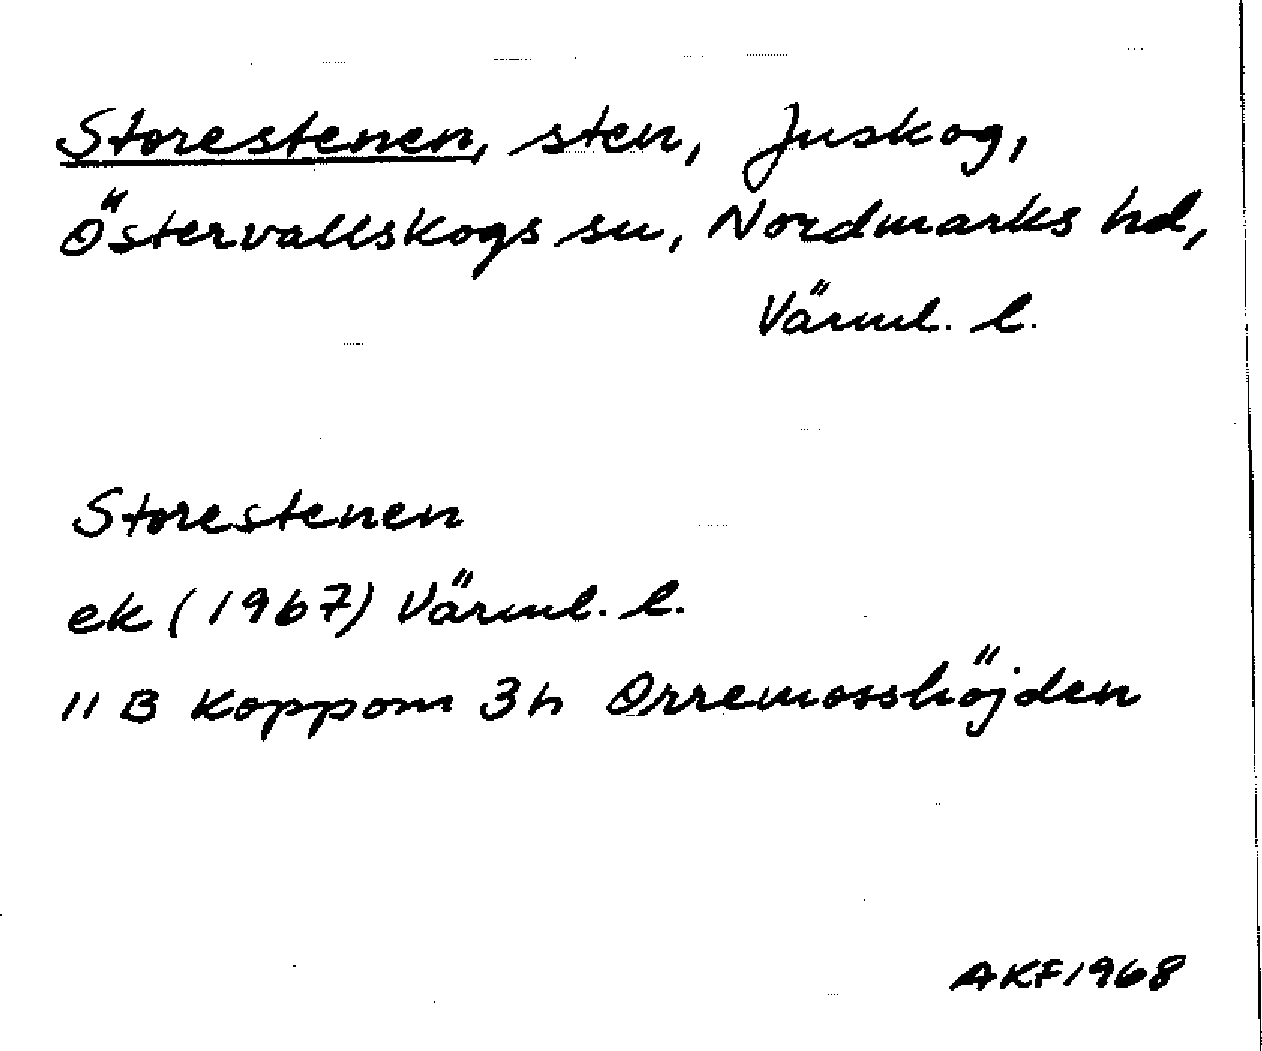 Storestenen, sten, Juskog,
Östervallskogs sn, Nordmarks hd,
Värml. l.
Storestenen
ek (1967) Värml. l.
11 B Koppom 3h Orremosshöjden
AKF1968